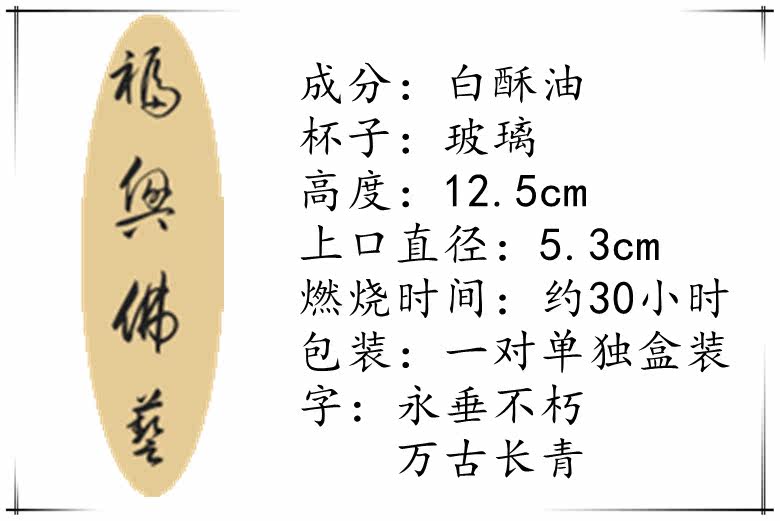 福興佛藝
成分：白酥油
杯子：玻璃
高度：12.5cm
上口直径：5.3cm
燃烧时间：约30小时
包装：一对单独盒装
字：永垂不朽
万古长青